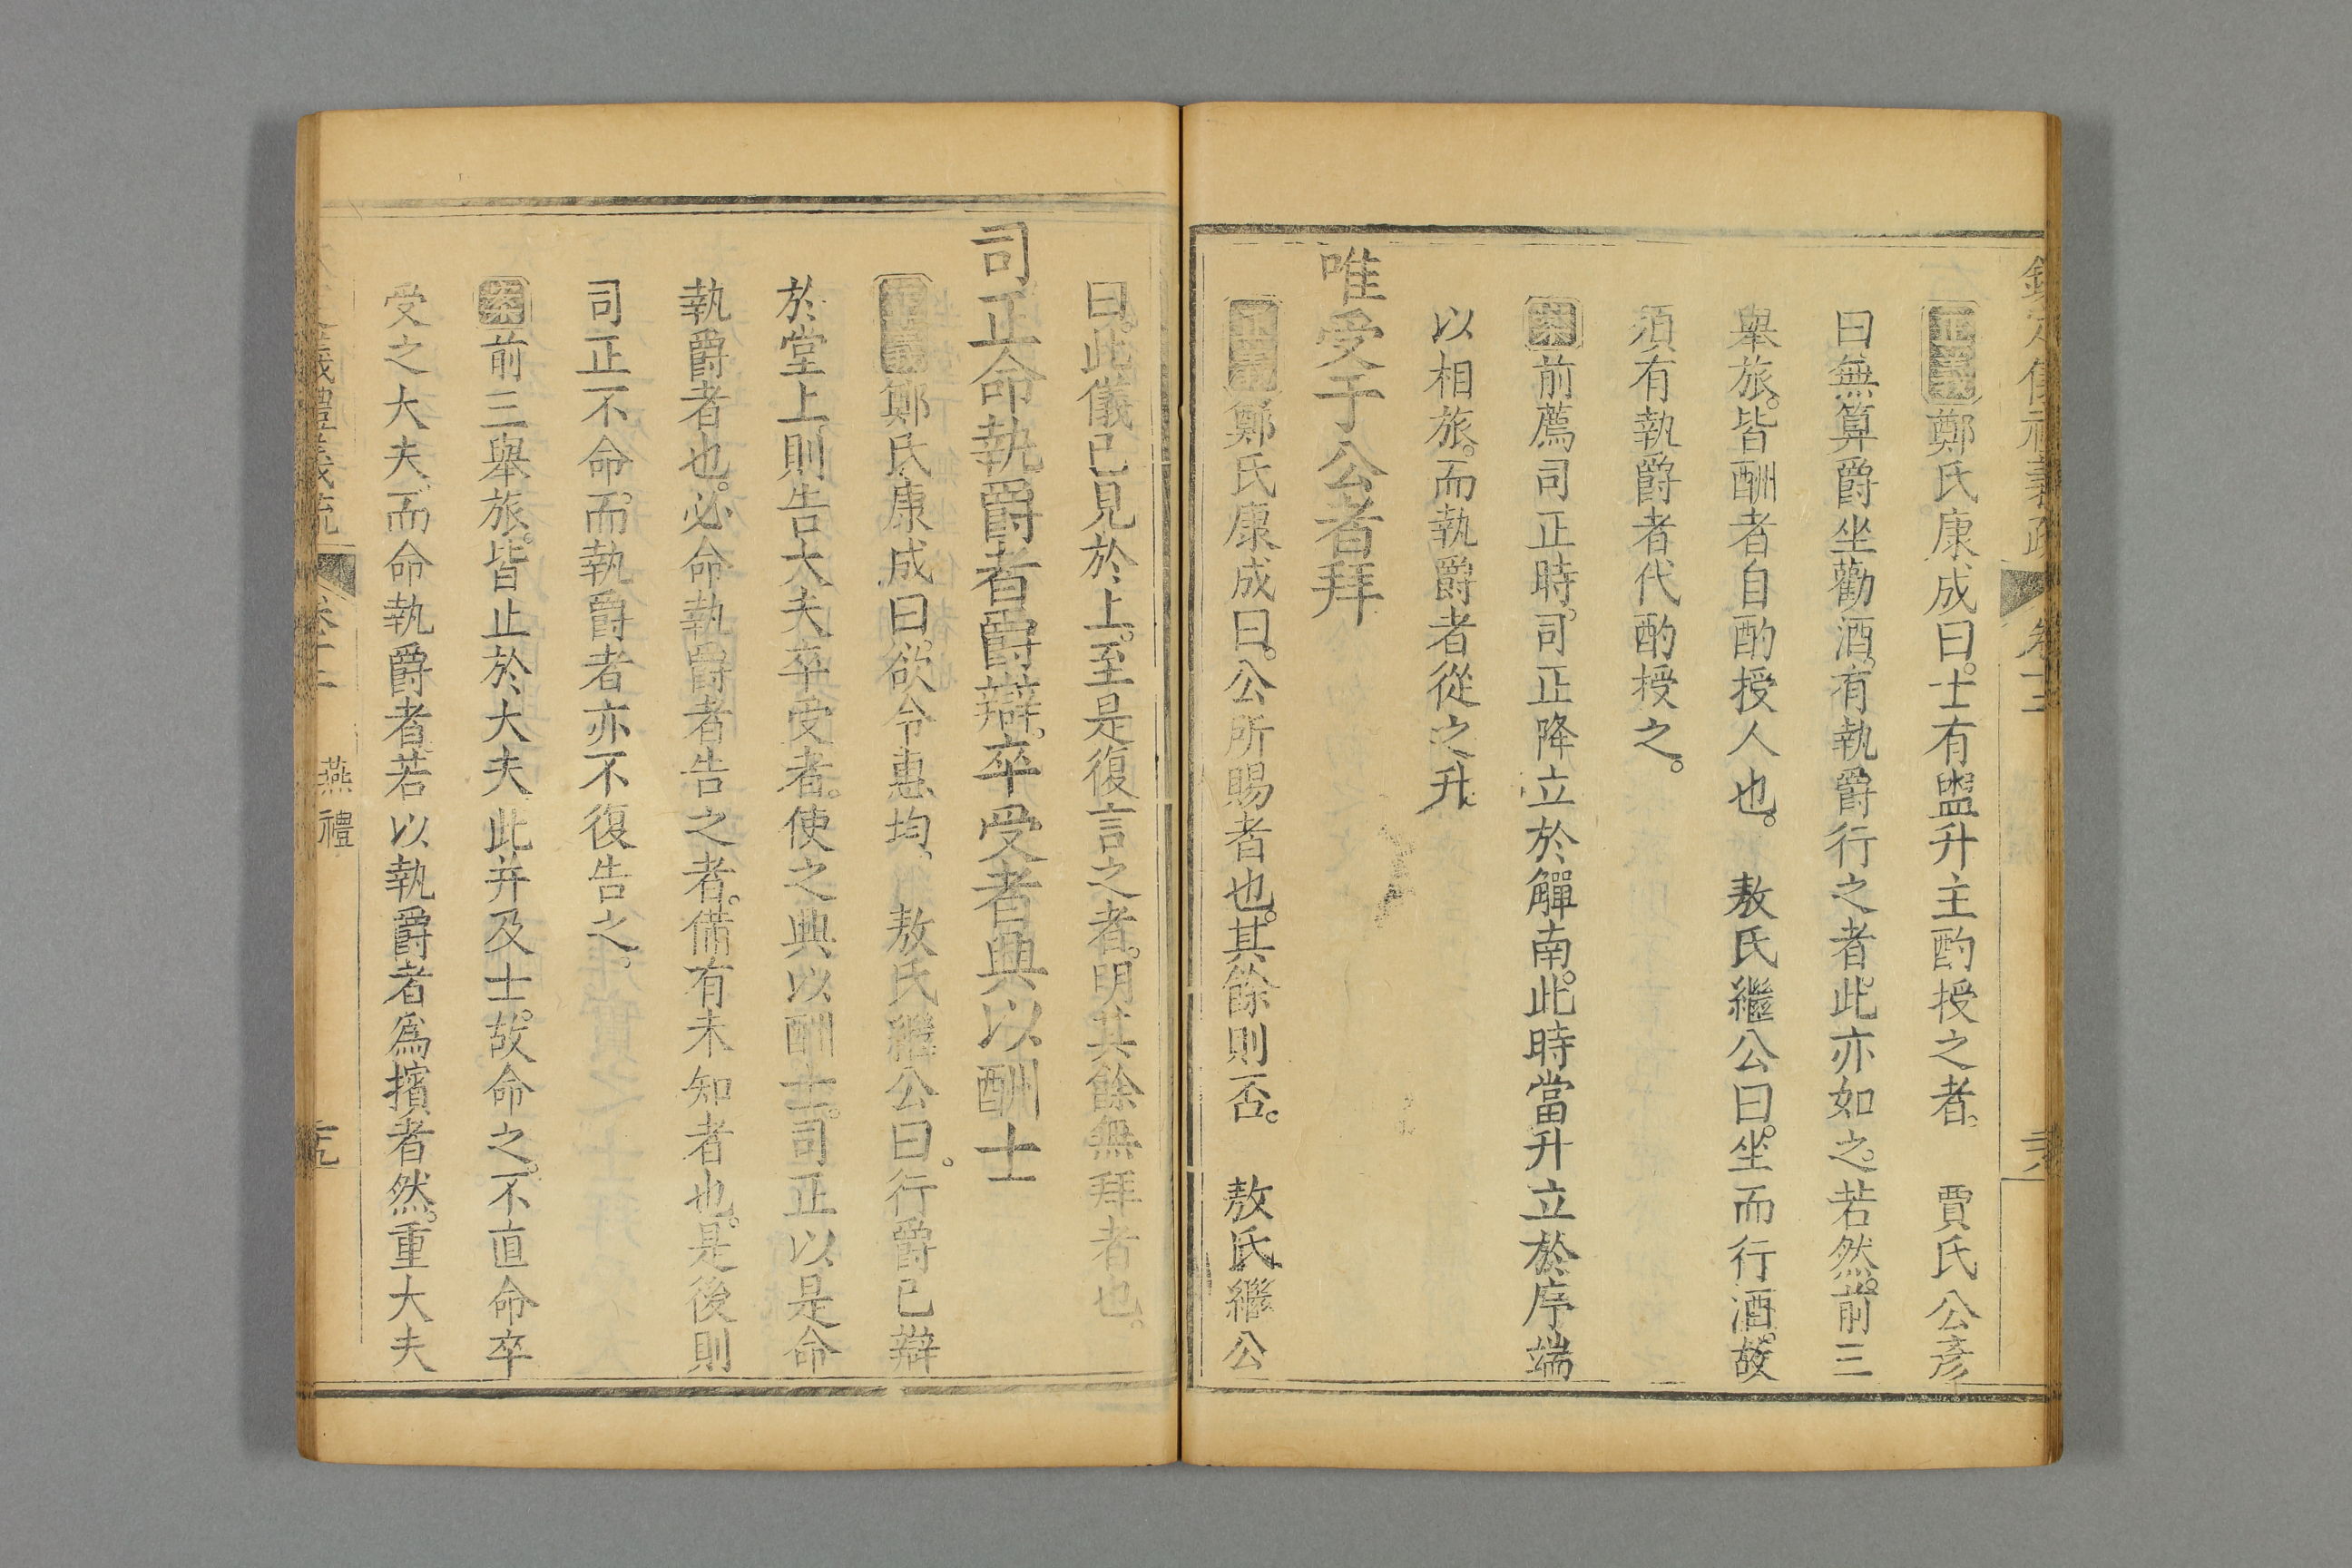 正義鄭氏康成曰。士有盥升主酌授之者。　賈氏公彥
曰無算爵坐勸酒。有執爵行之者。此亦如之。若然。前三
舉旅。皆酬者自酌授人也。　敖氏繼公曰。坐而行酒。故
須有執爵者代酌授之。
案前薦司正時。司正降立於觶南。此時當升立於序端
以相旅。而執爵者從之升
唯受于公者拜
正義鄭氏康成曰。公所賜者也。其餘則否。　敖氏繼公
曰。此儀已見於上。至是復言之者。明其餘無拜者也。
司正命執爵者爵辯。卒受者興以酬士
正義鄭氏康成曰。欲令惠均。　敖氏繼公曰。行爵已辯
於堂上則告大夫卒受者。使之興以酬士。司正以是命
執爵者也。必命執爵者告之者。備有未知者也。是後則
司正不命。而執爵者亦不復告之。
案前三舉旅。皆止於大夫此并及士。故命之。不直命卒
受之大夫而命執爵者若以執爵者爲擯者然。重大夫
儀禮義疏　燕禮